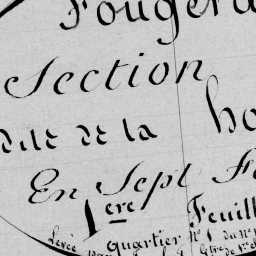 Fougera
Section
dite de la ho
En Sept Fe
1ere Feuill
Levée Quartier N° 1 du N°